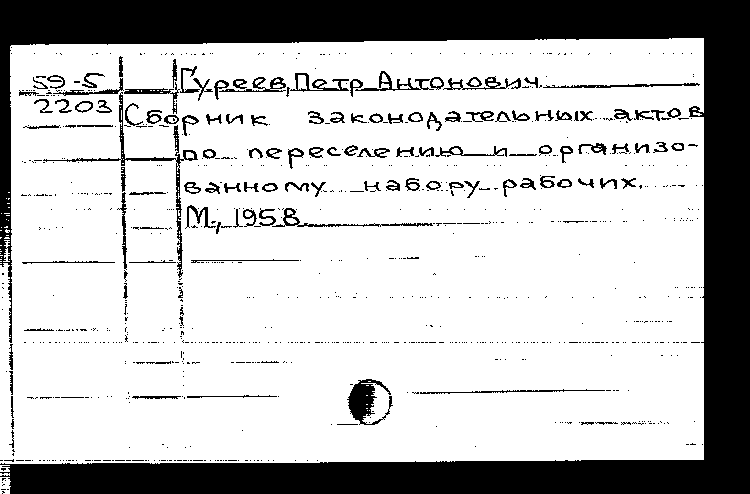 59-5 Гуреев, Петр Антонович
2203 Сборник законодательных актов
по переселению и организо-
ванному набору рабочих.
М., 1958.